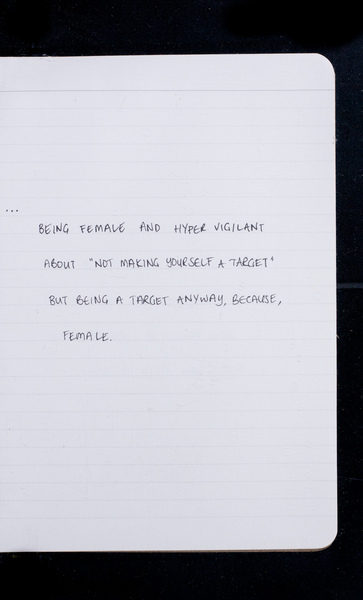 ...
BEING FEMALE AND HYPER VIGILANT
ABOUT "NOT MAKING YOURSELF A TARGET"
BUT BEING A TARGET ANYWAY, BECAUSE,
FEMALE.